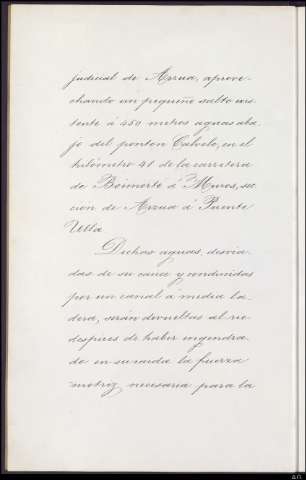 judicial de Arzua, aprove-
chando un pequeño salto exis-
tente á 450 metros aguas aba-
jo del ponton Calvelo, en el
kilómetro 41 de la carretera
de á Muros, sec-
cion de Arzua á Puente
Ulla.
Dichas aguas, desvia-
das de su cauce y conducidas
por un canal á media la-
dera, serán devueltas al rio
despues de haber engendra-
do en su caida la fuerza
motriz necesaria para la